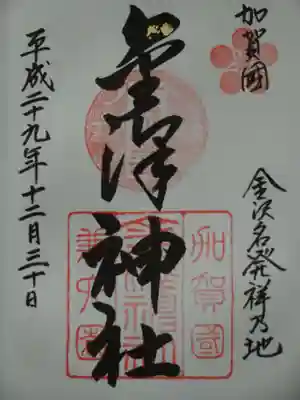 加賀國
金沢名発祥乃地
金澤神社
加賀國
平成二十九年十二月三十日